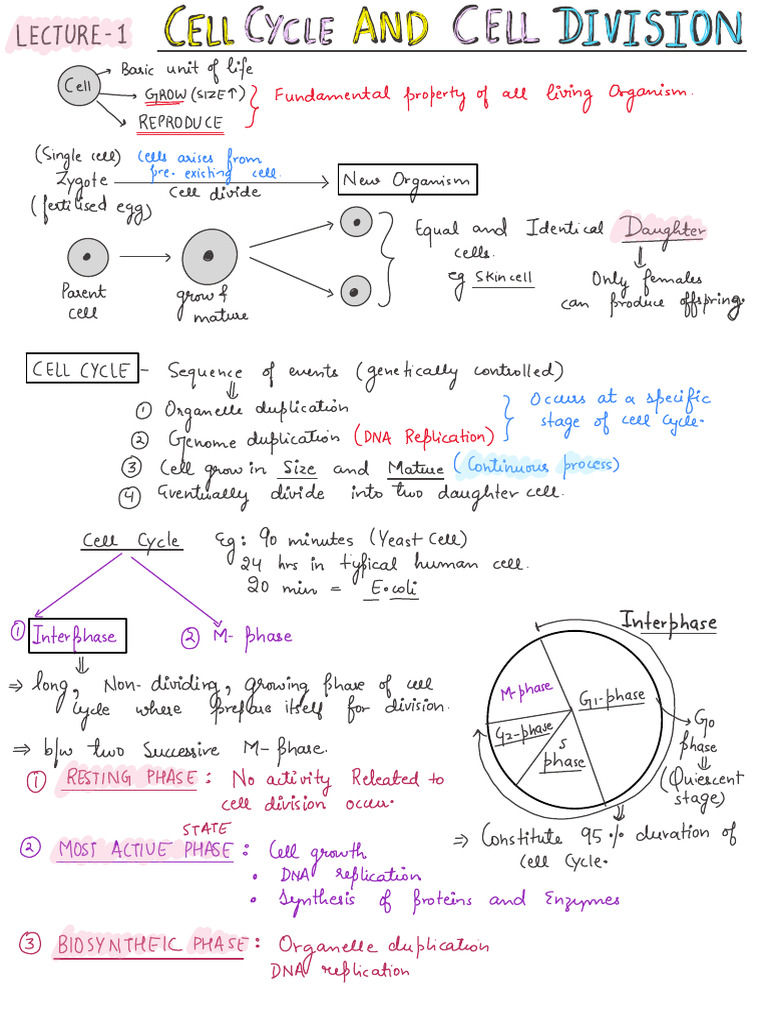 LECTURE-1 CELL CYCLE AND CELL DIVISION
Cell
Basic unit of life
GROW (SIZE↑)
REPRODUCE
Fundamental property of all living Organism.
(Single cell)
Zygote
(fertilised egg)
Cells arises from
pre-existing cell.
Cell divide
New Organism
Parent
cell
grow &
mature
Equal and Identical Daughter
cells.
eg Skin cell
Only females
can produce offspring.
CELL CYCLE - Sequence of events (genetically controlled)
⇓
① Organelle duplication
② Genome duplication (DNA Replication)
Occurs at a specific
stage of cell cycle.
③ Cell grow in Size and Mature (Continuous process)
④ Eventually divide into two daughter cell.
Cell Cycle Eg: 90 minutes (Yeast Cell)
24 hrs in typical human cell.
20 min = E.coli
① Interphase
② M-phase
⇒ long, Non-dividing, growing phase of cell
cycle where prepare itself for division.
⇒ b/w two Successive M-phase.
Interphase
M-phase
G1-phase
G2-phase
S
phase
G0
phase
(Quiescent
stage)
⇒ Constitute 95% duration of
cell cycle.
① RESTING PHASE: No activity Releated to
cell division occur.
STATE
② MOST ACTIVE PHASE: Cell growth
• DNA replication
• Synthesis of proteins and Enzymes
③ BIOSYNTHEIC PHASE: Organelle duplication
DNA replication